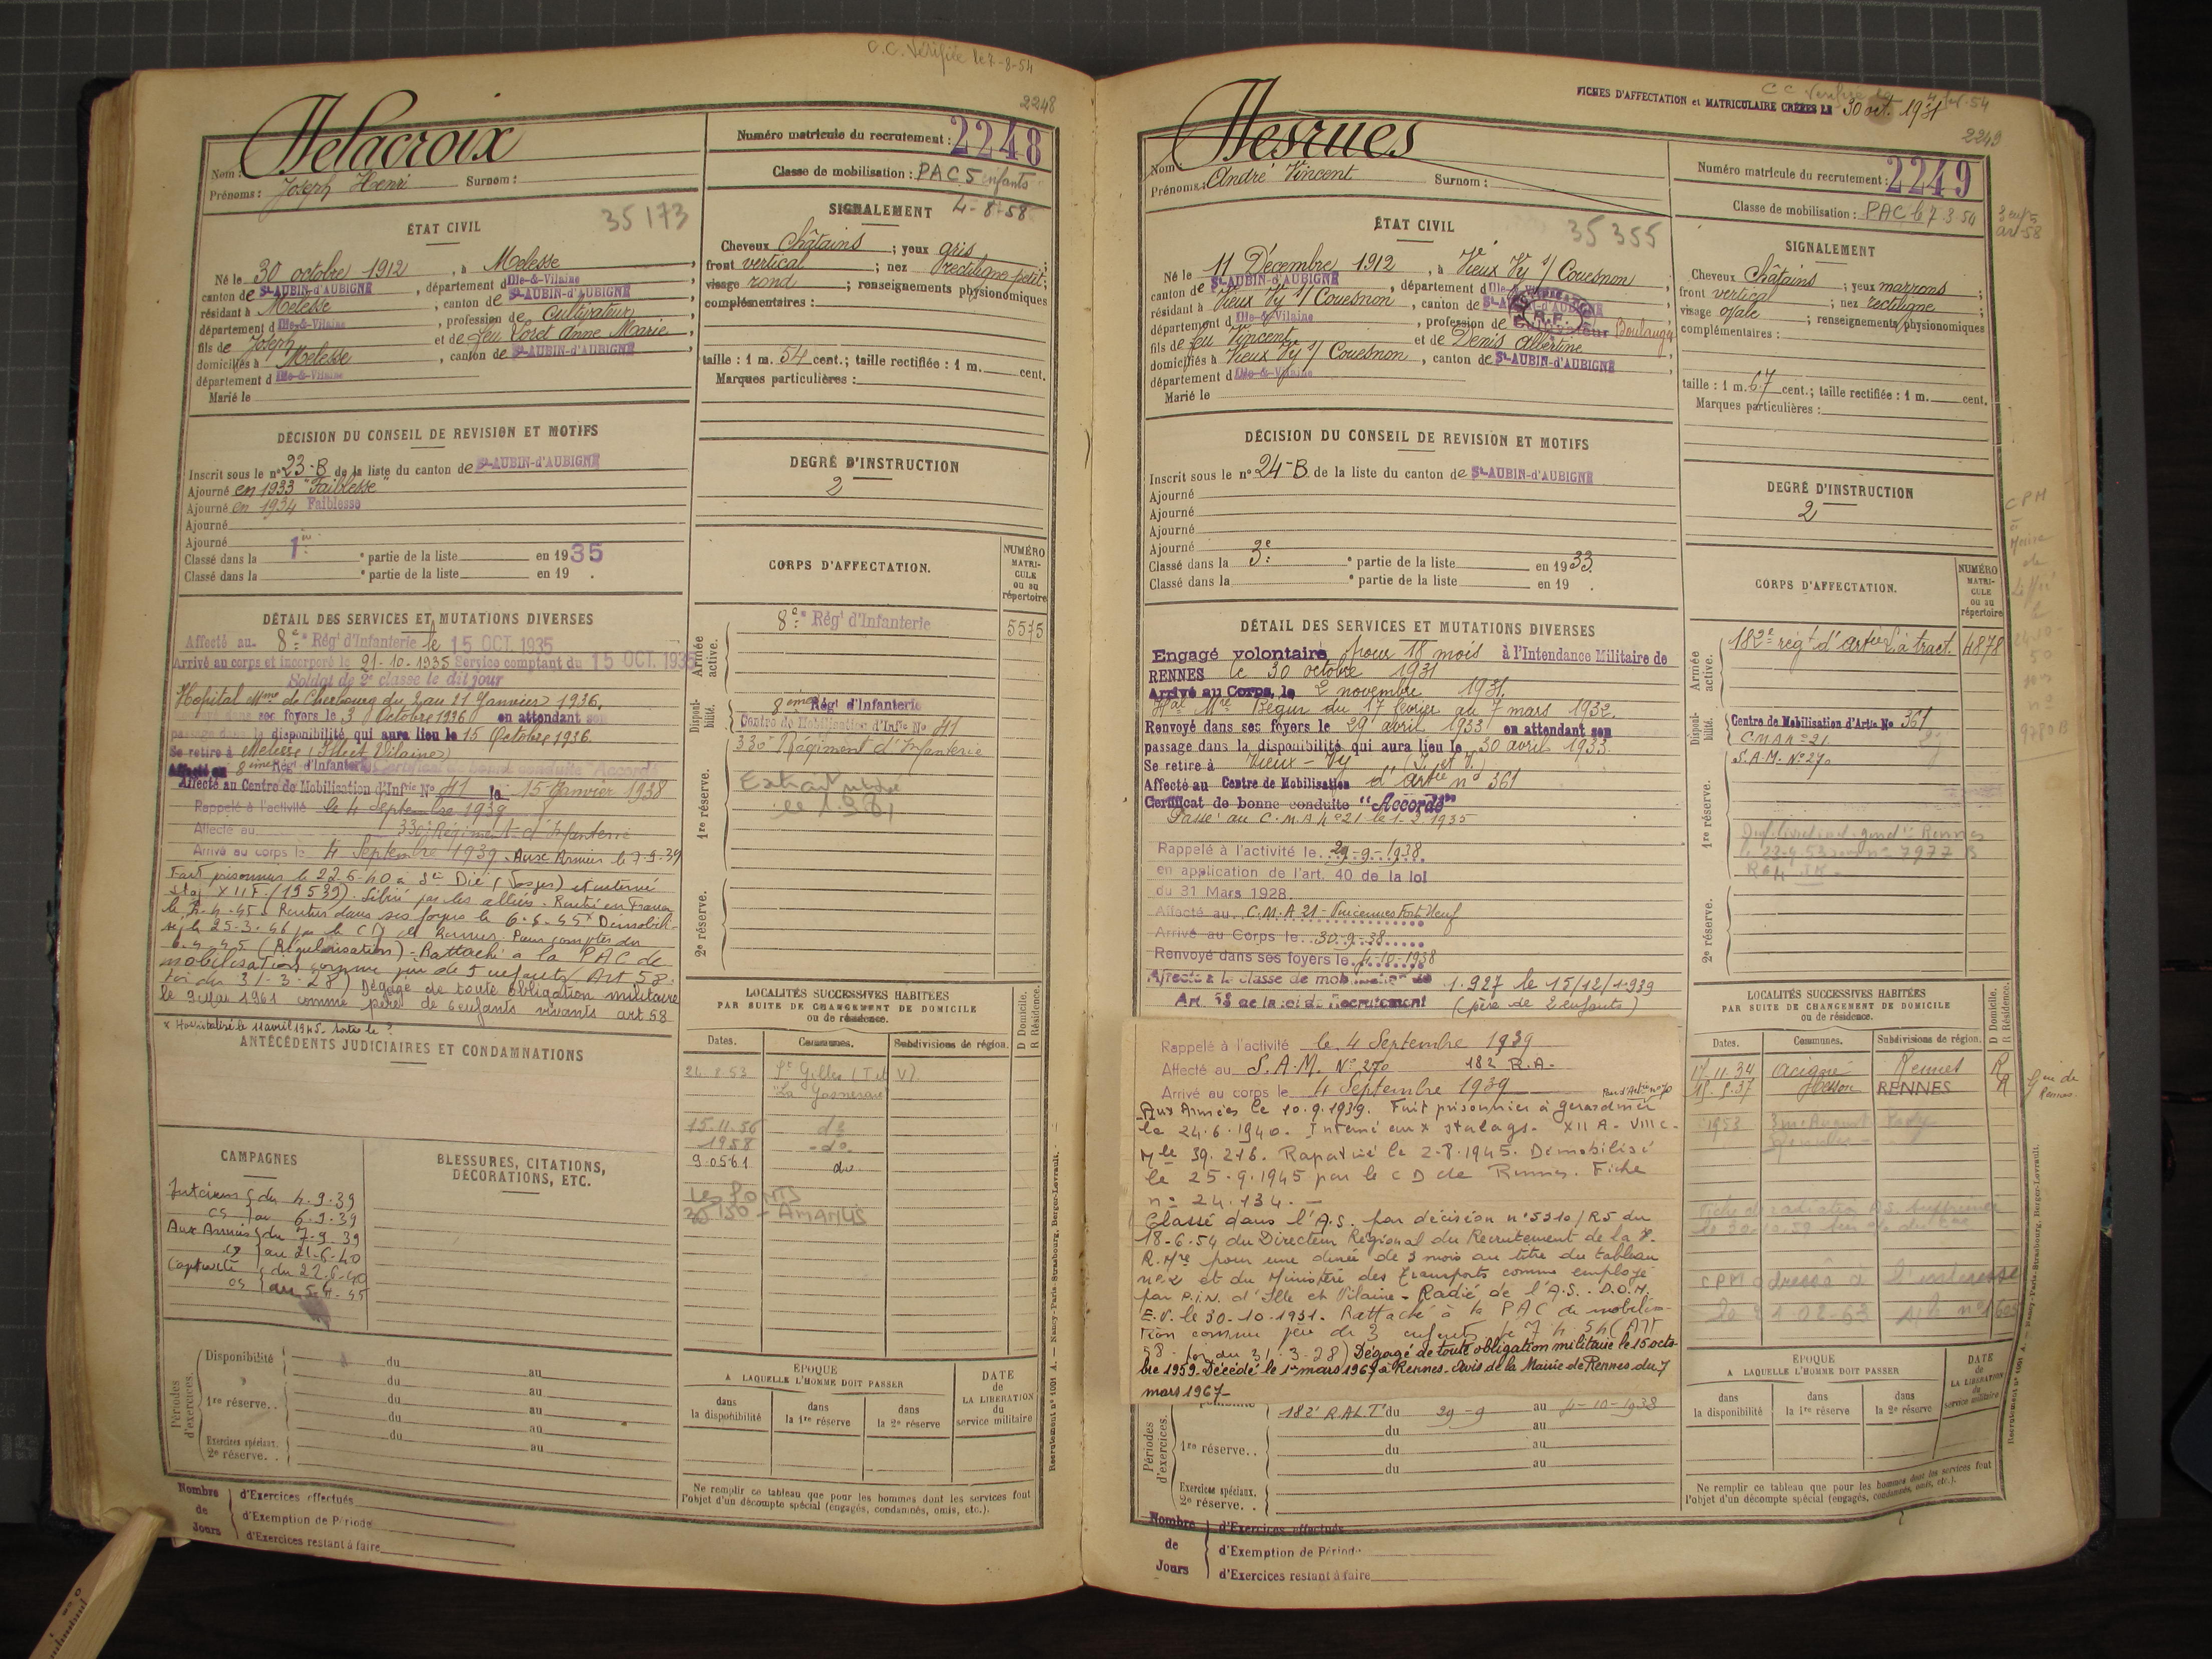 O.C. Vérifiée le 7-8-54
2248
Delacroix
Nom :
Prénoms : Joseph Henri Surnom :
Numéro matricule du recrutement : 2248
Classe de mobilisation : PAC 5 enfants
4-8-58
ÉTAT CIVIL
35173
Né le 30 octobre 1912, à Melesse,
canton de St-AUBIN-d'AUBIGNÉ, département d Ille-&-Vilaine
résidant à Melesse, canton de St-AUBIN-d'AUBIGNÉ
département d Ille-&-Vilaine, profession de Cultivateur
fils de Joseph et de feu Loret Anne Marie,
domiciliés à Melesse, canton de St-AUBIN-d'AUBIGNÉ
département d Ille-&-Vilaine
Marié le
SIGNALEMENT
Cheveux Châtains ; yeux gris ;
front vertical ; nez rectiligne petit ;
visage rond ; renseignements physionomiques
complémentaires :
taille : 1 m. 54 cent. ; taille rectifiée : 1 m. cent.
Marques particulières :
DÉCISION DU CONSEIL DE REVISION ET MOTIFS
Inscrit sous le n° 23-B de la liste du canton de St-AUBIN-d'AUBIGNÉ
Ajourné en 1933 "Faiblesse"
Ajourné en 1934 Faiblesse
Ajourné
Ajourné
Classé dans la 1re partie de la liste en 1935
Classé dans la e partie de la liste en 19 .
DEGRÉ D'INSTRUCTION
2
DÉTAIL DES SERVICES ET MUTATIONS DIVERSES
Affecté au 8e Régt d'Infanterie le 15 OCT. 1935
Arrivé au corps et incorporé le 21-10-1935 Service comptant du 15 OCT. 1935
Soldat de 2e classe le dit jour
Hopital Mme de Cherbourg du 2 au 21 Janvier 1936.
ses foyers le 3 Octobre 1936 en attendant son
passage dans la disponibilité qui aura lieu le 15 Octobre 1936.
Se retire à Melesse (Ille et Vilaine)
Affecté au 8ème Régt d'Infanterie Certificat de bonne conduite "Accordé"
Affecté au Centre de Mobilisation d'Infrie No 41 le 15 Janvier 1938
Rappelé à l'activité le 4 septembre 1939
Affecté au 330e Régiment d'Infanterie
Arrivé au corps le 4 Septembre 1939. Aux Armées le 7-9-39
Fait prisonnier le 22-6-40 à St Dié (Vosges) et interné
Stag XII F (19539). Libéré par les alliés. Rentré en France
le 5-4-45. Rentré dans ses foyers le 6-4-45 x Démobili-
sé le 25-3-46 par le CD de Rennes. Pour compter du
6.4.45 (Régularisation). Rattaché à la PAC de
mobilisation comme père de 5 enfants (Art 58.
loi du 31-3-28) Dégagé de toute obligation militaire
le 9 Mai 1961 comme père de 6 enfants vivants art 58
x Hospitalisé le 11 avril 1945. Sorti le ?
CORPS D'AFFECTATION.
NUMÉRO MATRI-CULE ou au répertoire
Armée active.
8e Régt d'Infanterie 5575
Disponi-bilité.
8ème Régt d'Infanterie
Centre de Mobilisation d'Infie No 41
1re réserve.
330e Régiment d'Infanterie
2e réserve.
ANTÉCÉDENTS JUDICIAIRES ET CONDAMNATIONS
LOCALITÉS SUCCESSIVES HABITÉES
PAR SUITE DE CHANGEMENT DE DOMICILE
ou de résidence.
D Domicile. R Résidence.
Dates. Communes. Subdivisions de région.
21.8.53 St Gilles (I et V)
15.11.56 do
1958 -do-
9.05.61 do
CAMPAGNES
Intérieur du 4.9.39
CS au 6.9.39
Aux Armées du 7.9.39
CS au 21-6-40
Captivité du 22.6.40
CS au 5-4-45
BLESSURES, CITATIONS,
DÉCORATIONS, ETC.
Périodes d'exercices.
Disponibilité du au
du au
1re réserve.. du au
du au
Exercices spéciaux. du au
2e réserve. .
ÉPOQUE
A LAQUELLE L'HOMME DOIT PASSER
DATE de LA LIBÉRATION du service militaire
dans la disponibilité
dans la 1re réserve
dans la 2e réserve
Ne remplir ce tableau que pour les hommes dont les services font
l'objet d'un décompte spécial (engagés, condamnés, omis, etc.).
Nombre de Jours
d'Exercices effectués
d'Exemption de Période
d'Exercices restant à faire
Recrutement n° 1001 A. — Nancy-Paris-Strasbourg, Berger-Levrault.
FICHES D'AFFECTATION et MATRICULAIRE CRÉÉES LE 30 oct. 1931
2249
Desrues
Nom :
Prénoms : André Vincent Surnom :
Numéro matricule du recrutement : 2249
Classe de mobilisation : PAC le 7 3 54
ÉTAT CIVIL
35355
Né le 11 Décembre 1912, à Vieux Vy s/ Couesnon,
canton de St-AUBIN-d'AUBIGNÉ, département d Ille-&-Vilaine
résidant à Vieux Vy s/ Couesnon, canton de St-AUBIN-d'AUBIGNÉ
département d Ille-&-Vilaine, profession de Cultivateur Boulanger
fils de feu Vincent et de Denis Albertine
domiciliés à Vieux Vy s/ Couesnon, canton de St-AUBIN-d'AUBIGNÉ
département d Ille-&-Vilaine
Marié le
SIGNALEMENT
Cheveux Châtains ; yeux marrons ;
front vertical ; nez rectiligne ;
visage ovale ; renseignements physionomiques
complémentaires :
taille : 1 m. 67 cent. ; taille rectifiée : 1 m. cent.
Marques particulières :
DÉCISION DU CONSEIL DE REVISION ET MOTIFS
Inscrit sous le n° 24-B de la liste du canton de St-AUBIN-d'AUBIGNÉ
Ajourné
Ajourné
Ajourné
Ajourné
Classé dans la 3e partie de la liste en 1933.
Classé dans la e partie de la liste en 19 .
DEGRÉ D'INSTRUCTION
2
DÉTAIL DES SERVICES ET MUTATIONS DIVERSES
Engagé volontaire pour 18 mois à l'Intendance Militaire de
RENNES le 30 octobre 1931
Arrivé au Corps, le 2 novembre 1931.
Hal Mre Bégin du 17 février au 7 mars 1932.
Renvoyé dans ses foyers le 29 avril 1933 en attendant son
passage dans la disponibilité qui aura lieu le 30 avril 1933.
Se retire à Vieux-Vy (I. et V.)
Affecté au Centre de Mobilisation d'artie n° 361
Certificat de bonne conduite "Accordé"
Passé au C.M.A n°21 le 1-2-1935
Rappelé à l'activité le 29-9-1938
en application de l'art. 40 de la loi
du 31 Mars 1928.
Affecté au C.M.A 21 - Vincennes Fort Neuf
Arrivé au Corps le 30-9-38
Renvoyé dans ses foyers le 4-10-1938
Affecté à la classe de mobilisation de 1.927 le 15/12/1939
Art. 58 de la loi de Recrutement (père de 2 enfants)
Rappelé à l'activité le 4 Septembre 1939
Affecté au S.A.M. N° 270 182 R.A.
Arrivé au corps le 4 Septembre 1939
Aux Armées le 10.9.1939. Fait prisonnier à Gerardmer
le 24.6.1940. Interné aux stalags. XII A - VIII C-
Mle 39.216. Rapatrié le 2-8-1945. Démobilisé
le 25.9.1945 par le C D de Rennes. Fiche
n° 24.134. -
Classé dans l'A.S. par décision n° 5310/R5 du
18-6-54 du Directeur Régional du Recrutement de la
R.Mre pour une durée de 3 mois au titre du tableau
n°2 et du Ministère des Transports comme employé
par P.I.N. d'Ille et Vilaine - Radié de l'A.S. - D.O.M.
E.V. le 30-10-1931. Rattaché à la PAC de mobilisa-
tion comme père de 3 enfants le 7 4 54 (Art
58. loi du 31-3-28) Dégagé de toute obligation militaire le 15 octo-
bre 1959. Décédé le 1er mars 1967 à Rennes. Avis de la Mairie de Rennes du 7
mars 1967-
CORPS D'AFFECTATION.
NUMÉRO MATRI-CULE ou au répertoire
Armée active.
182e régt d'artie à tract. 4878
Disponi-bilité.
Centre de Mobilisation d'Artie No 361
C.M.A n° 21.
1re réserve.
S.A.M. N° 270
2e réserve.
LOCALITÉS SUCCESSIVES HABITÉES
PAR SUITE DE CHANGEMENT DE DOMICILE
ou de résidence.
D Domicile. R Résidence.
Dates. Communes. Subdivisions de région.
17.11.34 Acigné Rennes R
RENNES R
1953
Périodes d'exercices.
182e RALT du 29-9 au 4-10-1938
du au
1re réserve.. du au
du au
Exercices spéciaux.
2e réserve. .
ÉPOQUE
A LAQUELLE L'HOMME DOIT PASSER
DATE de LA LIBÉRATION du service militaire
dans la disponibilité
dans la 1re réserve
dans la 2e réserve
Ne remplir ce tableau que pour les hommes dont les services font
l'objet d'un décompte spécial (engagés, condamnés, omis, etc.).
Nombre de Jours
d'Exercices effectués
d'Exemption de Période
d'Exercices restant à faire
Recrutement n° 1001 A. — Nancy-Paris-Strasbourg, Berger-Levrault.